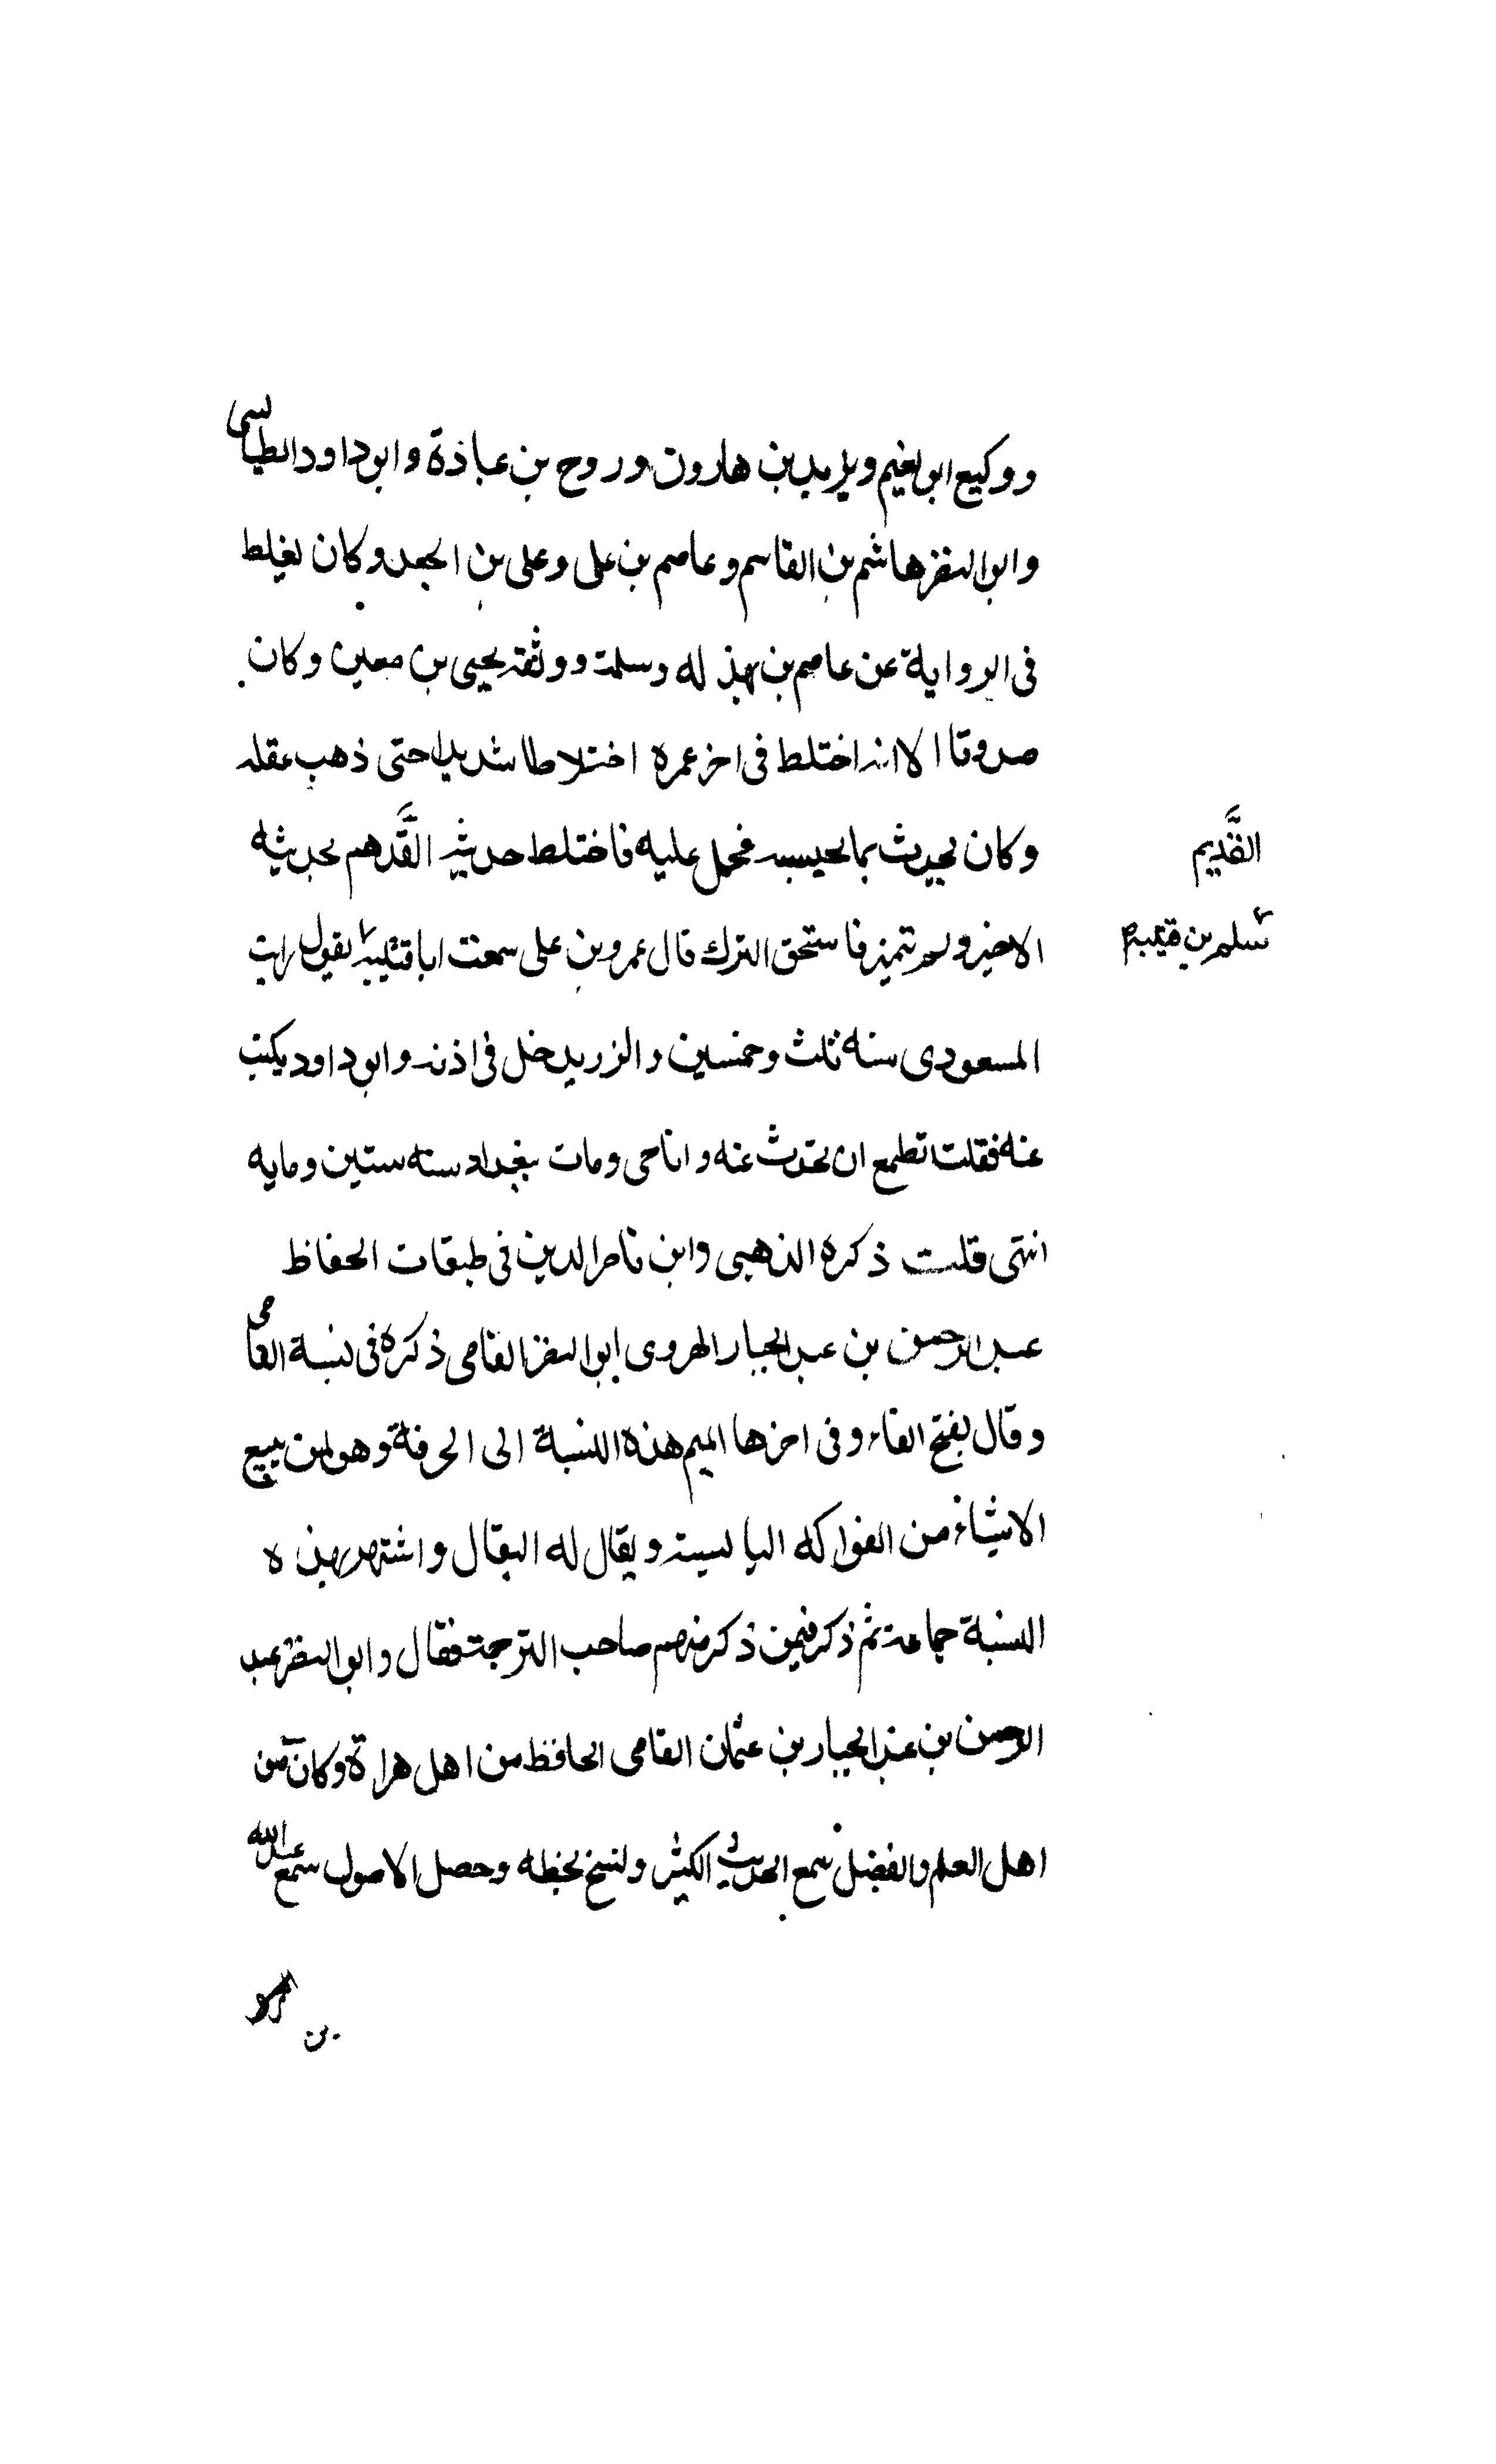 ووكيع ابو نعيم ويزيد بن هارون وروح بن عباذة وابو داود الطيالسى
وابو النضر هاشم بن القاسم وعاصم بن على وعلى بن الجعد وكان يغلط
فى الرواية عن عاصم بن بهذله وسلمة ووثقه يحيى بن معين وكان
صدوقا الا انه اختلط فى اخر عمره اختلاطا شديدا حتى ذهب عقله
وكان يحدث بما يحسبه فحمل عليه فاختلط حديثه القدهم بحديثه
القديم
الاخير ولم تتميز فاستحق الترك قال عمرو بن على سمعت ابا قتيبه يقول رايت
سلم بن قتيبه
المسعودى سنه ثلث وخمسين والزر يدخل فى اذنه وابو داود يكتب
عنه فقلت تطمع ان تحدث عنه وانا حى ومات ببغداد سنه ستين ومايه
انتهى قلت ذكره الذهبى وابن ناصر الدين فى طبقات الحفاظ
عبد الرحمن بن عبد الجبار الهروى ابو النضر الفامى ذكره فى نسبة الفامى
وقال بفتح الفاء وفى اخرها الميم هذه النسبة الى الحرفة وهو لمن يبيع
الاشياء من الفواكه اليابسة ويقال له البقال واشتهر بهذه
النسبة جماعة ثم ذكر فيمن ذكر منهم صاحب الترجمة فقال وابو النضر عبد
الرحمن بن عبد الجبار بن عثمان الفامى الحافظ من اهل هراة وكان من
اهل العلم والفضل سمع الحديث الكثير ونسخ بخطه وحصل الاصول سمع عبد الله
بن